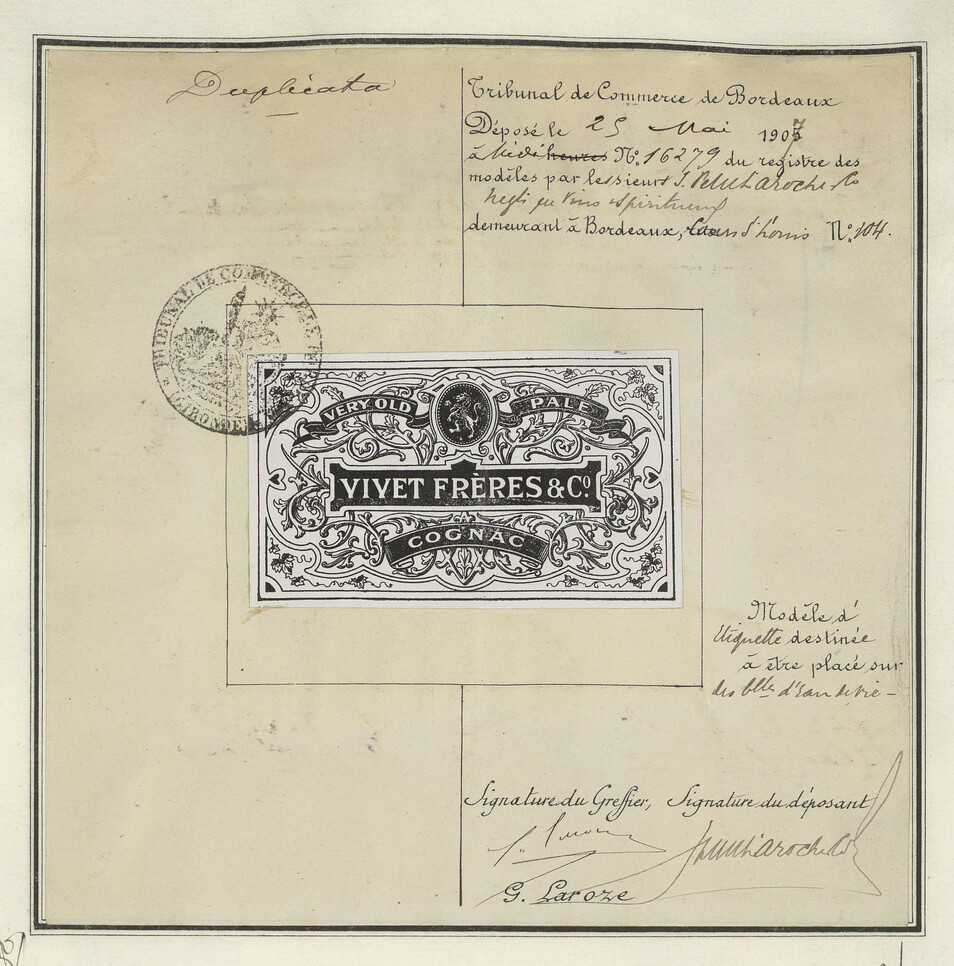 Duplicata
Tribunal de Commerce de Bordeaux
Déposé le 25 Mai 1907
à Midi heures N° 16279 du registre des
modèles par les sieurs J. Petit Laroche & Co
Negts en Vins & spiritueux
demeurant à Bordeaux, Cours St Louis N° 104.
TRIBUNAL DE COMMERCE
GIRONDE
VERY OLD PALE
VIVET FRÈRES & Co.
COGNAC
Modèle d'
Etiquette destinée
à être placé sur
des blles d'Eau de vie -
Signature du Greffier, Signature du déposant
G. Laroze